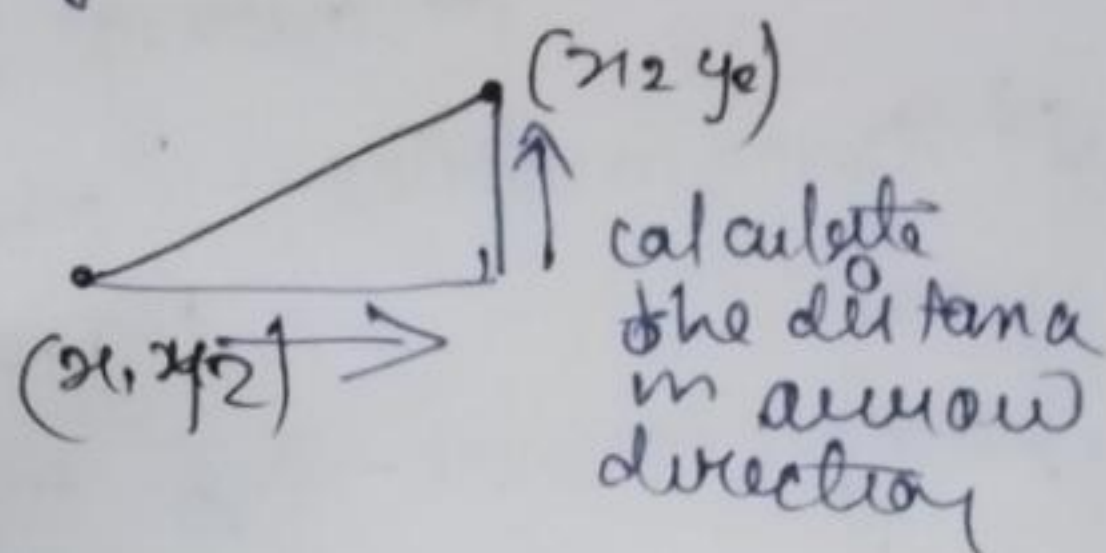 (x2 y2)
calculate
the distance
in arrow
direction